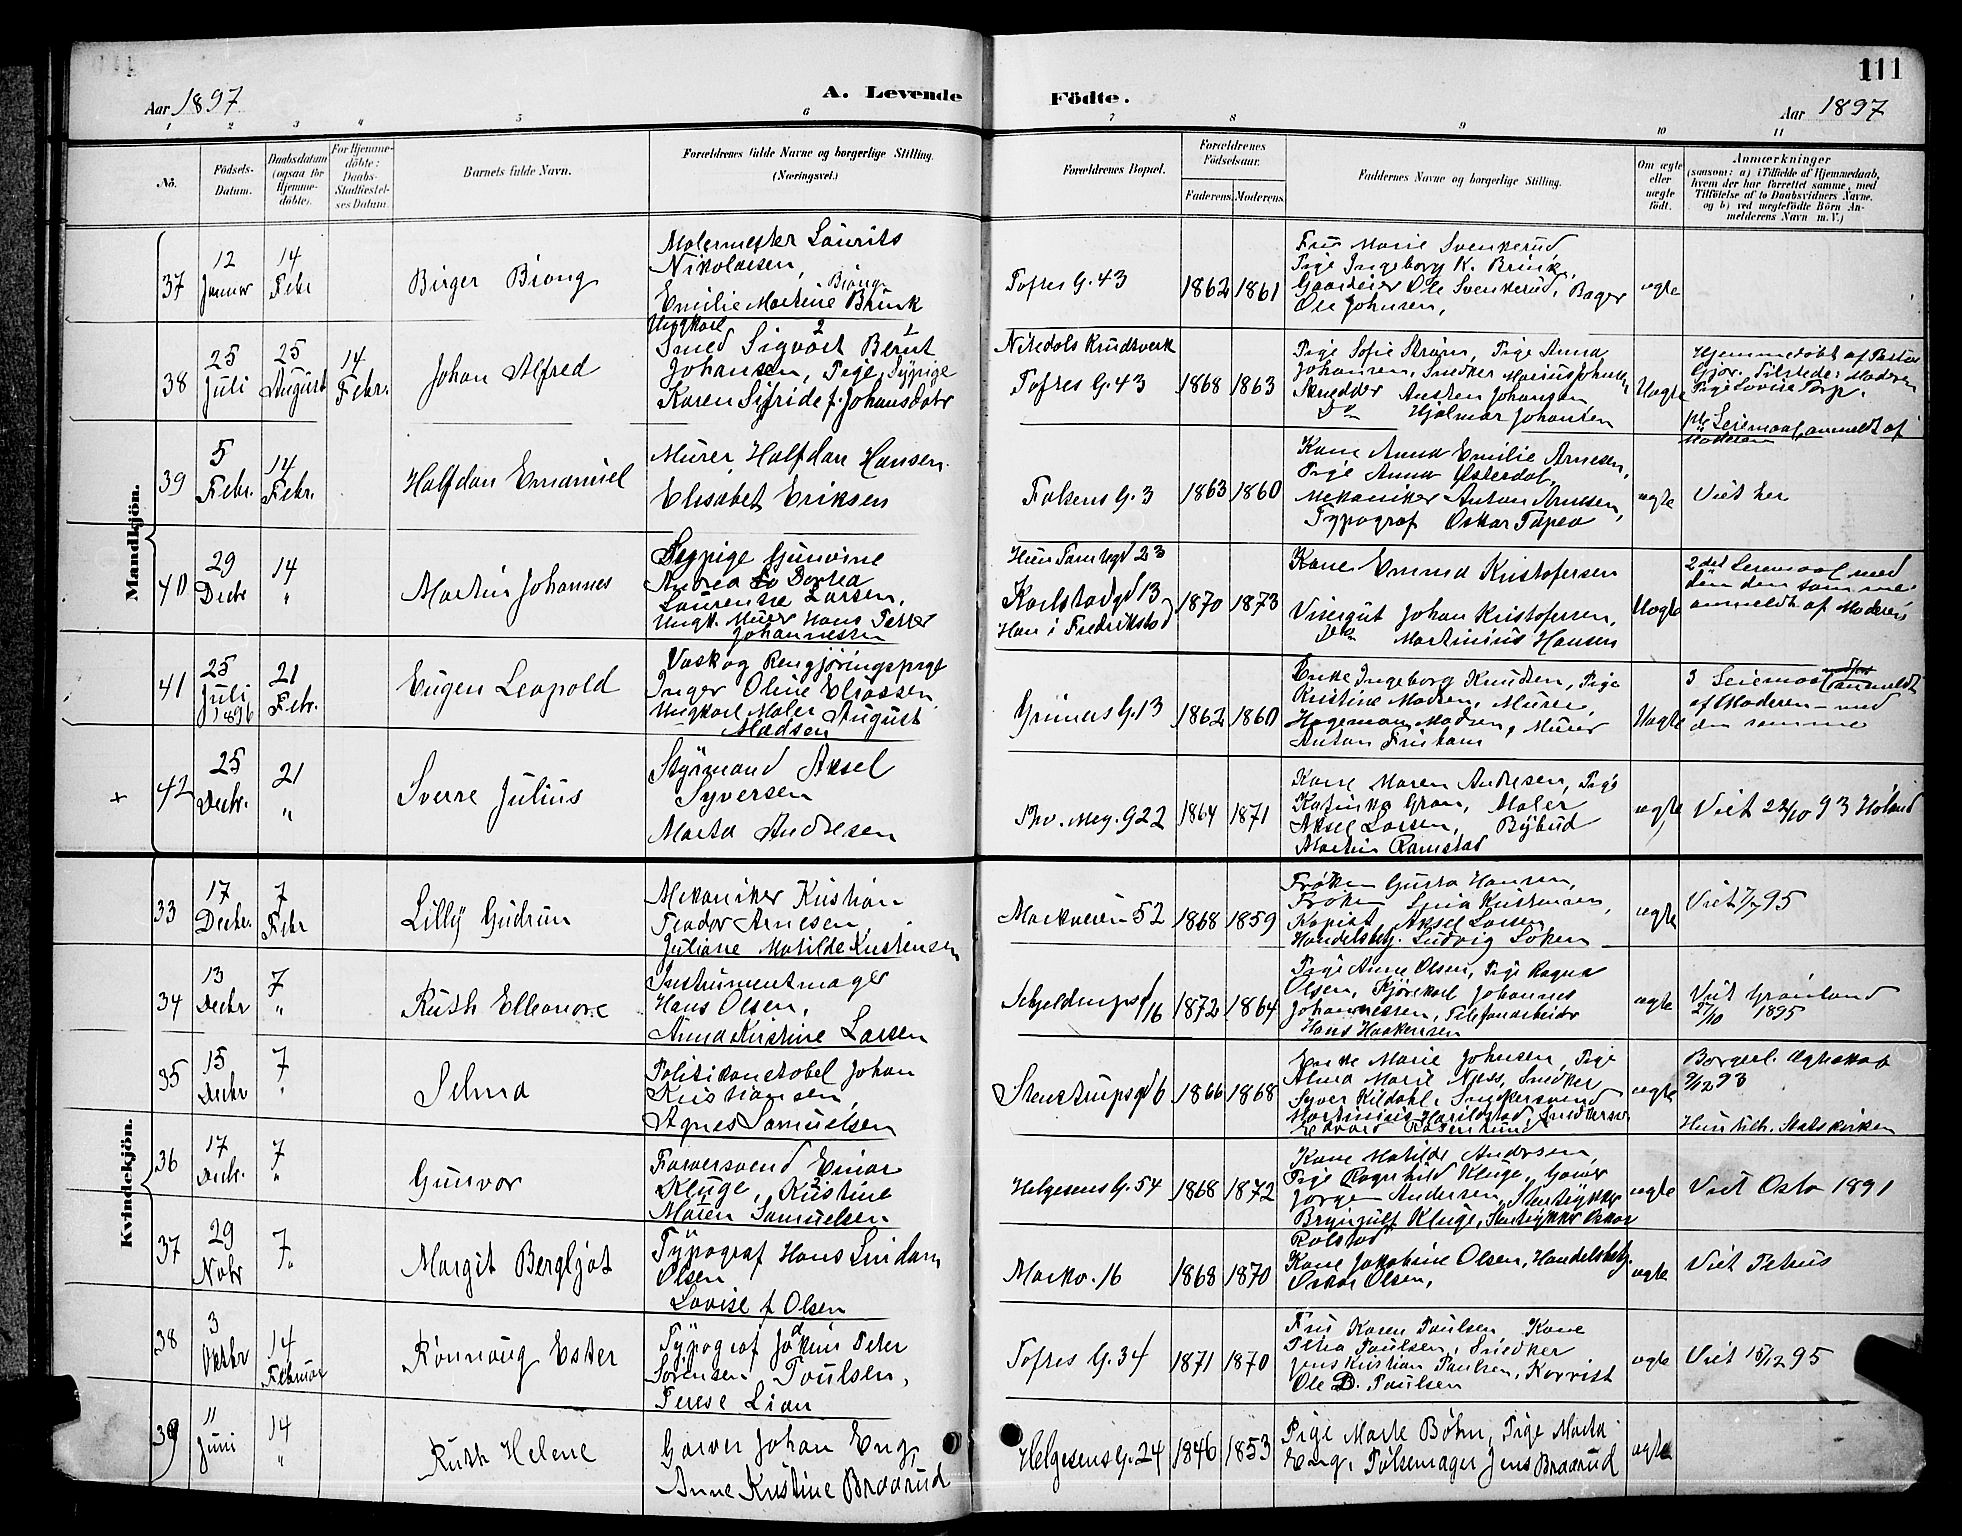 111
Aar 1897
A. Levende Födte.
Aar 1897
1 2 3 4 5 6 7 8 9 10 11
No.
Födsels-Datum.
Daabsdatum (ogsaa for Hjemme-döbte).
For Hjemme-döbte: Daabs-Stadfæstel-ses Datum.
Barnets fulde Navn.
Forældrenes fulde Navne og borgerlige Stilling. (Næringsvei.)
Forældrenes Bopæl.
Forældrenes Födselsaar.
Faderens. Moderens.
Faddernes Navne og borgerlige Stilling.
Om ægte eller uægte födt.
Anmærkninger
(saasom: a) i Tilfælde af Hjemmedaab, hvem der har forrettet samme, med Tilföielse af to Daabsvidners Navne. og b) ved uægtefödte Börn An-melderens Navn m. V.)
Mandkjön.
37
12 Januar
14 Febr
Birger Biong
Malermester Laurits
Nikolaisen,
Biong
Emilie Martine Brink
Toftes G. 43
1862 1861
Fru Marie Svenkerud
Pige Ingeborg K. Brink,
Gaardeier Ole Svenkerud, Bager
Ole Johnsen,
ægte
38
25 Juli
25 August
14 Febr.
Johan Alfred
Ungkarl
Smed Sigvart Bernt
Johansen, Pige, Sypige
Karen Sifride f. Johansdatr
Nitedals Krudtverk
Toftes G. 43
1868 1863
Pige Sofie Strøm, Pige Anna
Johansen, Snedker Marius Johansen
Skrædder Austen Johansen
Do Hjalmar Johansen
Uægte
Hjemmedøbt af Pastor
Gjør. Tilstede: Moderen
Pige Lovise Torp.
1ste Leiemaal, anmeldt af
Moderen
39
5 Febr.
14 Febr.
Halfdan Emanuel
Murer Halfdan Hansen
Elisabet Eriksen
Falsens G. 3
1863 1860
Kone Anna Emilie Arnesen,
Pige Anna Østerdal,
Mekaniker Anton Arnesen,
Typograf Oskar Tapeo
ægte
Viet her
40
29 Decbr
14 "
Martin Johannes
Sypige Gunvine
Andrea Dortea
Laurentze Larsen,
Ungk. Murer Hans Petter
Johannessen
Hun Tomtegd 23
Karlstadgd 13
Han i Fredrikstad
1870 1873
Kone Emma Kristofersen
Visergut Johan Kristofersen,
Do Martinius Hansen
Uægte
2det Leiemaal med
den samme
anmeldt af Moderen
41
25 Juli 1896
21 Febr.
Eugen Leopold
Vask og Rengjøringspige
Inger Oline Eliassen
Ungkarl Maler August
Madsen
Grüners G. 13
1862 1860
Enke Ingeborg Knudsen, Pige
Kristine Madsen, Murer
Hageman Madsen, Murer
Anton
Uægte
3 Leiemaal anmeldt
af Moderen – med
den samme
+
42
25 Decbr.
21 "
Sverre Julius
Styrmand Aksel
Syversen
Marta Andresen
Thv. Mey. G 22
1864 1871
Kone Maren Andresen, Pige
Katinka Gran, Maler
Aksel Larsen, Bybud
Martin Ramstad
ægte
Viet 22/10 93 Høland
Kvindekjön.
33
17 Decbr.
7 Febr
Lilly Gudrun
Mekaniker Kristian
Teodor Arnesen,
Juliane Matilde Kristensen
Markveien 52
1868 1859
Frøken Gusta Hansen,
Frøken Kristensen,
Kopist Aksel Larsen
Handelsbetj. Ludvig Løken
ægte
Viet 1/7 95
34
13 Decbr
7 "
Ruth Elleonore
Instrumentmager
Hans Olsen,
Anna Kristine Larsen
Schjeldrupsgd 16
1872 1864
Pige Anne Olsen, Pige Ragna
Olsen, Kjørekarl Johannes
Johannessen, Telefonarbeider
Hans Haakensen
ægte
Viet Grønland
27/10 1895
35
15 Decbr
7 "
Selma
Politikonstabel Johan
Kristiansen
Agnes Samuelsen
Stenstrupsgd 6
1866 1868
Enke Marie Johnsen, Pige
Alma Marie Næss, Snedker
Syver Kildahl, Snedkersvend
ægte
Borgerl. Ægteskab
9/12 93
Hun tilh. Statskirken
36
17 Decbr.
7 "
Gunvor
Farversvend Einar
Kluge, Kristine
Maren Samuelsen
Helgesens G. 54
1868 1872
Kone Matilde Andersen,
Pige Ragnhild Kluge, Garver
Jørgen Andersen, Stentrykker
Bryngulf Kluge, Stentrykker Oskar
Rolstad
ægte
Viet Oslo 1891
37
29 Nobr
7 "
Margit Bergljot
Typograf Hans Lindam
Olsen
Lovise f Olsen
Markv. 16
1868 1870
Kone Jakobine Olsen, Handelsbetj.
Oskar Olsen,
ægte
Viet Petrus
38
3 Oktbr
14 Februar
Rønnaug Ester
Typograf Jokum Peter
Sørensen Poulsen,
Terese Lian
Toftes G. 34
1871 1870
Fru Karen Paulsen, Kone
Petra Paulsen, Snedker
Jens Kristian Paulsen, Korrist
Ole D. Paulsen
ægte
Viet 15/12 95
39
11 Juni
14 "
Ruth Helene
Garver Johan Eng,
Anne Kristine Braarud
Helgesens G. 24
1846 1853
Pige Marte Bøhn, Pige Marta
Eng, Pølsemager Jens Braarud
ægte